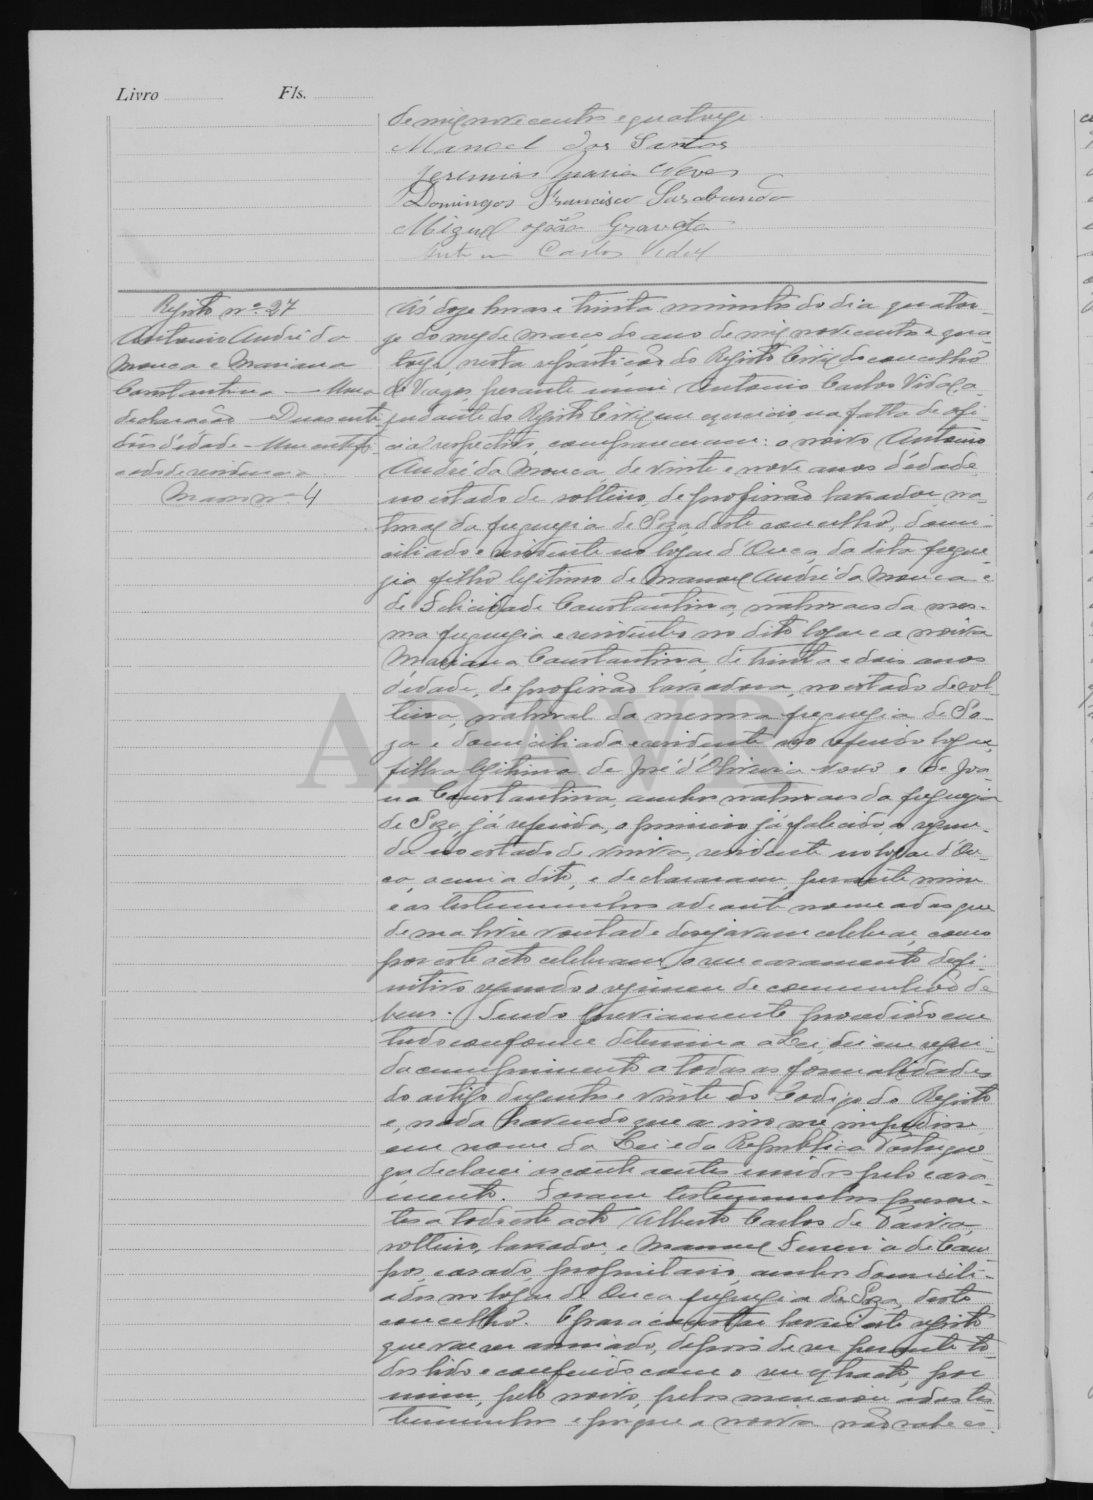 Livro Fls.
de mil novecentos e quatorze.
Manoel dos Santos
Jeremias Maria Neves
Domingos Francisco Sarabando
Miguel João Gravato
Carlos Vidal
Registo nº 27
Antonio André da
Mouca e Mariana
Constantina — Uma
declaração — Duas certi
dões d'edade — Um certifi
cado de residencia
Maço nº 4
Ás doze horas e trinta minutos do dia quator-
ze do mez de março do ano de mil novecentos e qua
torze, nesta repartição do Registo Civil do concelho
de Vagos, perante mim Antonio Carlos Vidal, a-
judante do Registo Civil em exercicio na falta de ofi-
cial respectivo, compareceram: o noivo Antonio
André da Mouca, de vinte e nove anos d'edade
no estado de solteiro, de profissão lavrador, na-
tural da freguezia de Soza, deste concelho, domi-
ciliado e residente no logar d'Ouca, da dita fregue-
zia, filho legitimo de Manoel André da Mouca e
de Felicidade Constantina, naturaes da mes-
ma freguezia e residentes no dito logar e a noiva
Mariana Constantina, de trinta e dois anos
d'edade, de profissão lavradora, no estado de sol-
teira, natural da mesma freguezia de So-
za e domiciliada e residente no referido logar,
filha legitima de José d'Oliveira Novo e de Joa-
na Constantina, ambos naturaes da freguezia
de Soza, já referida, o primeiro já falecido, a segun-
da no estado de viuva, residente no logar d'Ou-
ca, acima dito, e declararam, perante mim
e as testemunhas adeante nomeadas que
de sua livre vontade desejavam celebrar, como
por este acto celebram, o seu casamento defi-
nitivo segundo o regimen de communhão de
bens. Sendo previamente procedido em
tudo conforme determina a Lei, dei em segui-
da cumprimento a todas as formalidades
do artigo duzentos e vinte do Codigo do Registo
e, nada havendo que a isso me impedisse,
em nome da Lei e da Republica Portugue-
za declarei os contraentes unidos pelo casa-
mento. Foram testemunhas presen-
tes a todo este acto Alberto Carlos de Paiva,
solteiro, lavrador, e Manoel Ferreira de Cam
pos, casado, proprietario, ambos domicili-
ados no logar de Ouca freguezia de Soza, deste
concelho. E para constar lavrei este registo
que vae ser assinado, depois de ser perante to-
dos lido e conferido com o seu extracto, por
mim, pelo noivo, pelas mencionadas tes-
temunhas e porque a noiva não sabe es-
ADAVR